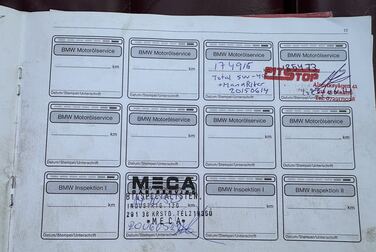 BMW Motorölservice
BMW Motorölservice
BMW Motorölservice
BMW Motorölservice
km
km
174916
185473
Total 5W-40
+MANNfilter
20150614
PITSTOP
Datum/Stempel/Unterschrift
Datum/Stempel/Unterschrift
Datum/Stempel/Unterschrift
BMW Motorölservice
BMW Motorölservice
BMW Motorölservice
BMW Motorölservice
km
km
km
km
Datum/Stempel/Unterschrift
Datum/Stempel/Unterschrift
Datum/Stempel/Unterschrift
Datum/Stempel/Unterschrift
BMW Inspektion I
MECA
BMW Inspektion I
BMW Inspektion II
km
BILSPECIALISTEN
km
km
INDUSTRIG. 120
291 36 KRSTD. TEL
*MECA*
Datum/Stempel/Unterschrift
Datum/Stempel/Unterschrift
Datum/Stempel/Unterschrift